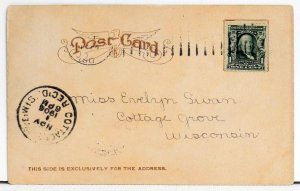 Post Card
COTTAGE
NOV
1906
6 PM
REC'D.
WIS.
Miss Evelyn Swan
Cottage Grove
Wisconsin
THIS SIDE IS EXCLUSIVELY FOR THE ADDRESS.